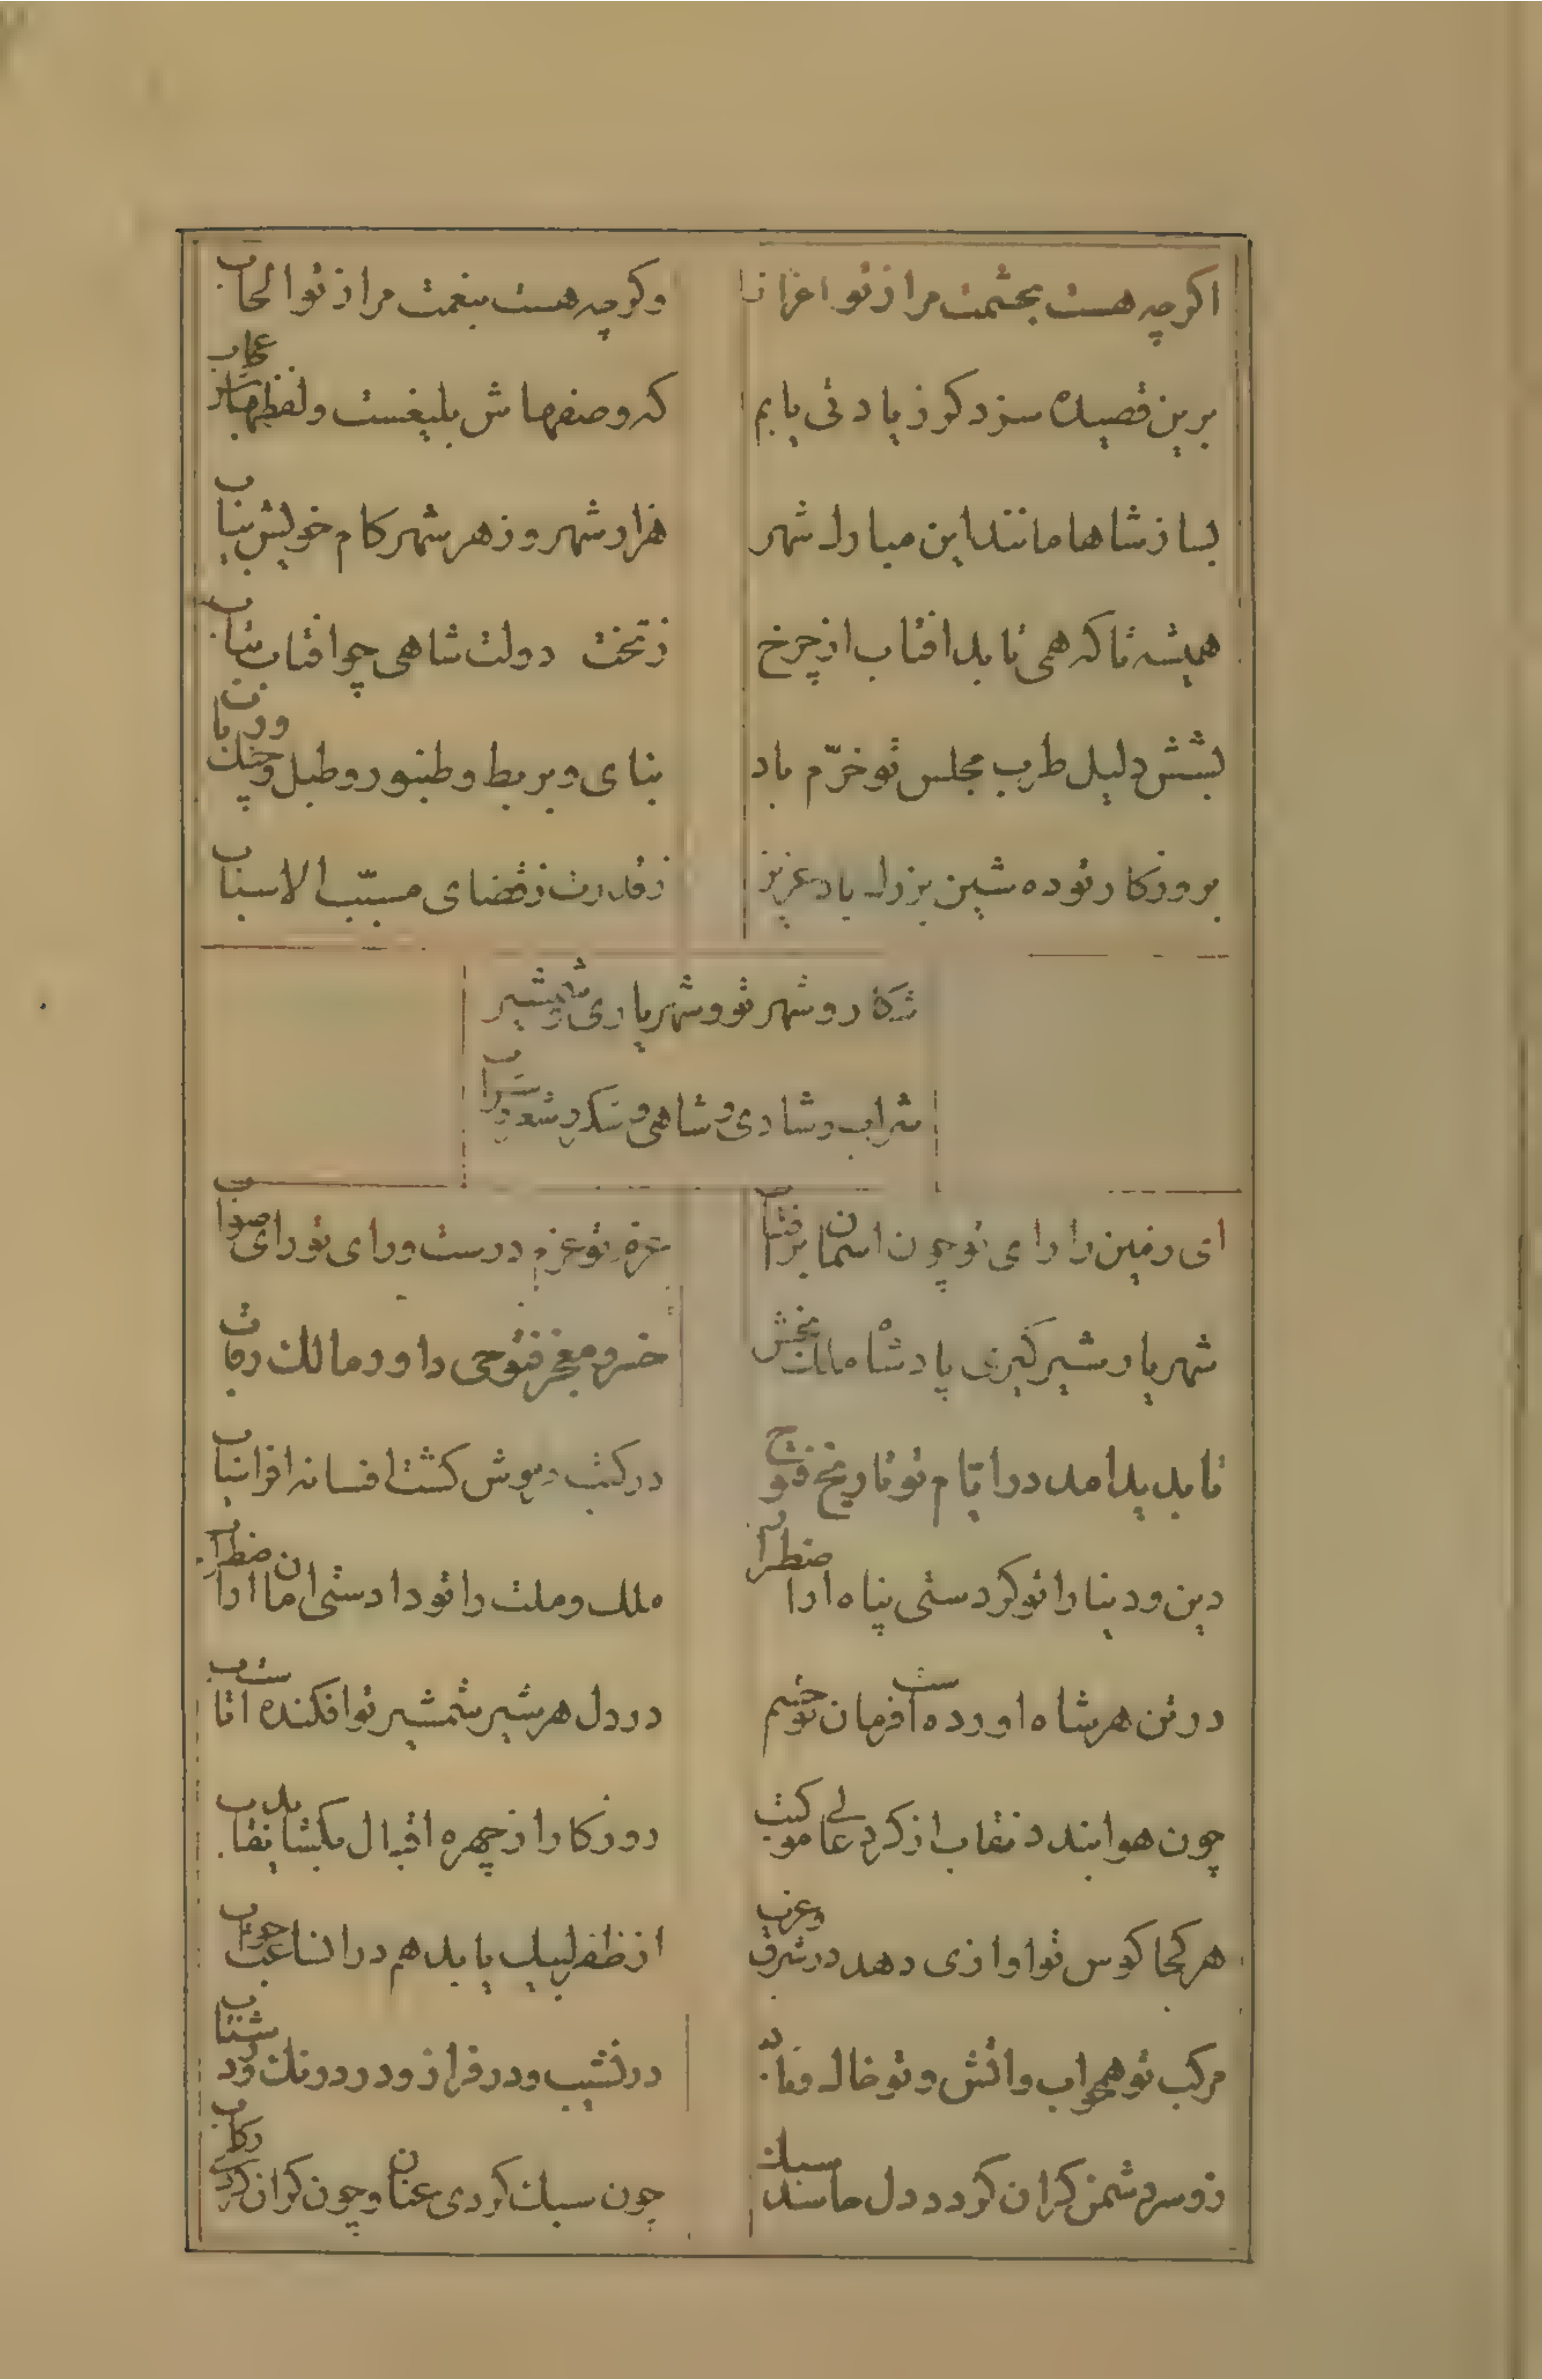 اکرچه هست بحشمت مرا ز تو اعزاز
وکرچه هست بنعمت مرا ز تو ایجاب
برین قصیده سزد کر زیادتی یابم
که وصفهاش بلیغست و لفظهاش عجاب
بساز شاها مانند این مبارک شهر
هزار شهر و زهر شهر کام خویش بیاب
همیشه تا که همی تابد افتاب از چرخ
ز تخت دولت شاهی چو افتاب بتاب
بشش دلیل طرب مجلس تو خرّم باد
بنای و بربط و طنبور و طبل و چنک و رباب
بروزکار تو ده شین بزرک باد عزیز
ز قدرت ز قضای مسبّب الاسباب
شکار و شهر تو و شهریاری و شمشیر
شراب و شادی و شاهی و شکر و شعر و شراب
ای زمین را رای تو چون اسمان بر افتاب
عزم تو عزم درست و رای تو رای صواب
شهریار شیرکیری پادشاه ملک بخش
خسرو معجز فتوحی داور مالک رقاب
تا بدید امد در ایّام تو تاریخ فتوح
در کتب درپوش کشت افسانه افراسیاب
دین و دنیا را تو کردستی پناه از اضطرار
ملک و ملت را تو دادستی امان از اضطراب
در تن هر شاه اورده است فرمان تو خشم
در دل هر شیر شمشیر تو افکنده است تاب
چون هوا بندد نقاب از کرد عالی موکبت
روزکار از چهره اقبال بکشاید نقاب
هر کجا کوس تو اوازی دهد در شرق و غرب
از ظفر لبیک یابد هم در انساعت جواب
مرکب تو همچو اب و اتش و تو خاک و باد
در نشیب و در فراز و در درنک و در شتاب
زو سر دشمن کران کردد دل حاسد سبک
چون سبک کردی عنان و چون کران کردی رکاب